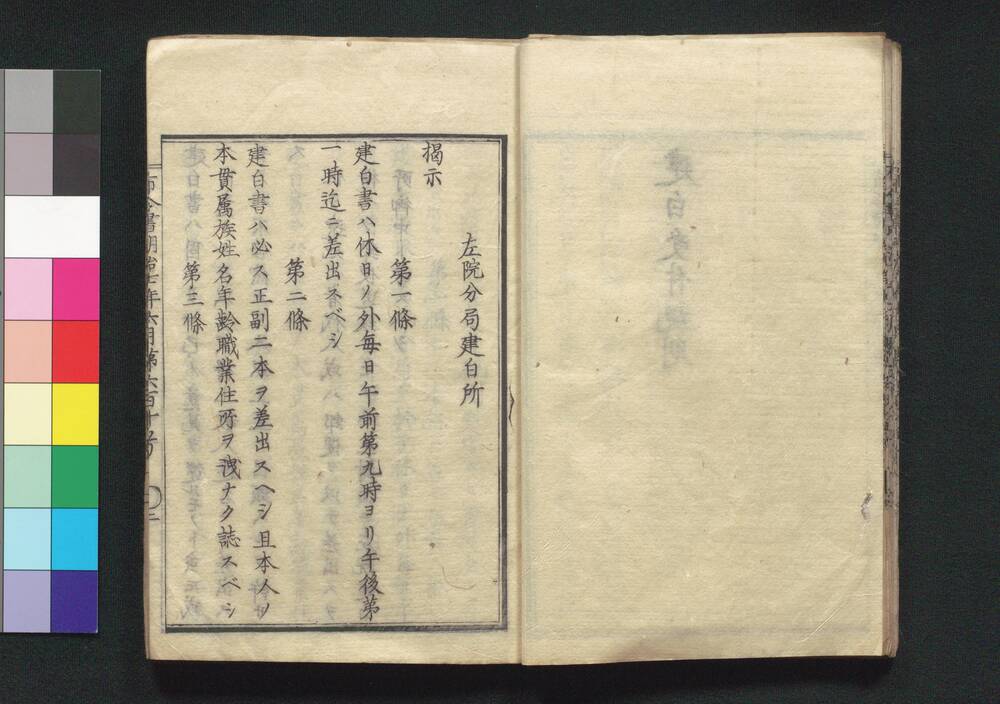 左院分局建白所
揭示
第一條
建白書ハ休日ノ外每日午前第九時ヨリ午後第
一時迄ニ差出スベシ
第二條
建白書ハ必ス正副二本ヲ差出スヘシ且本人ノ
本貫属族姓名年齡職業住所ヲ洩ナク誌スベシ
第三條
布令書明治七年六月第六百十号